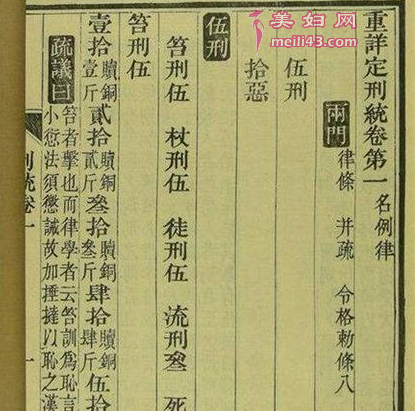 美妇网
meili43.com
重詳定刑統卷第一 名例律
兩門 律條 并疏 令格勅條八
伍刑
拾惡
伍刑
笞刑伍 杖刑伍 徒刑伍 流刑叄 死
笞刑伍
壹拾 贖銅壹斤 貳拾 贖銅貳斤 叄拾 贖銅叄斤 肆拾 贖銅肆斤 伍拾
疏議曰 笞者擊也而律學者云笞訓爲恥言
小愆法須懲誡故加捶撻以恥之漢
刑統卷一 一